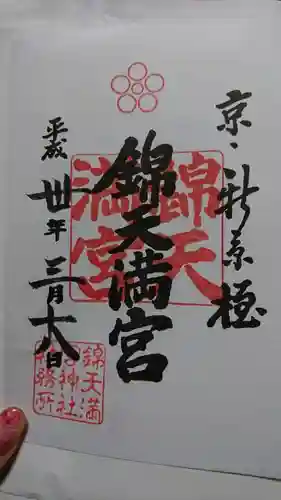 京・新京極
錦天満宮
平成卅年三月十八日
錦天
満宮
錦天満
宮神社
社務所